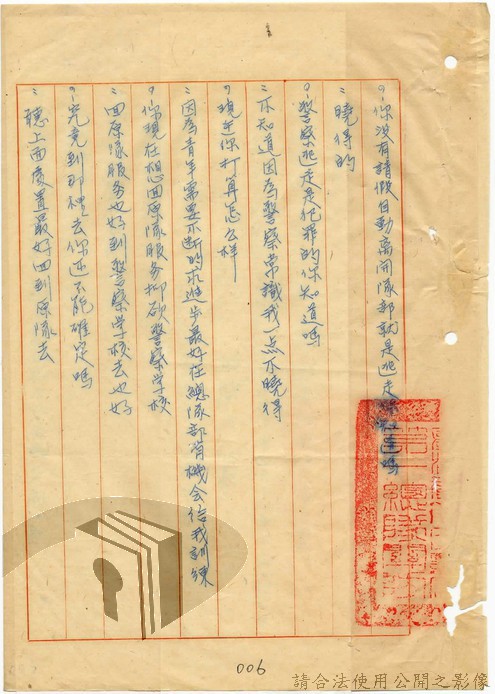 ?你没有請假自動离開隊部就是逃走你知道嗎
:曉得的
?警察逃走是犯罪的你知道嗎
:不知道因為警察常識我一点不曉得
?現在你打算怎么样
:因為青年需要不断的求進步最好在總隊部有機会给我訓練
?你現在想回原隊服务抑欲警察学校
:回原隊服务也好到警察学校去也好
?究竟到那裡去你还不能確定嗎
:聽上面處置最好回到原隊去
006
請合法使用公開之影像